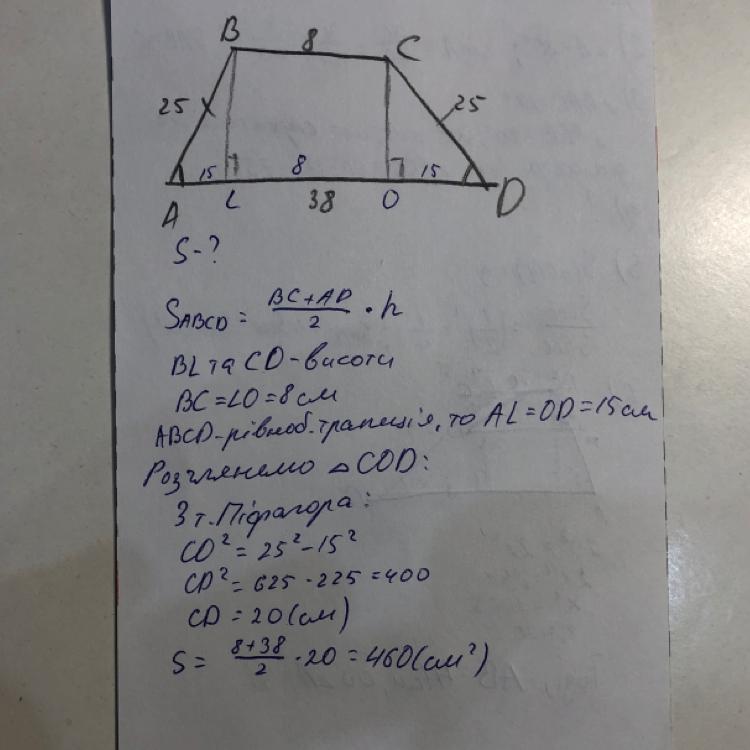 B 8 C
25 25
15 8 15
A L 38 O D
S-?
S ABCD = BC+AD/2 · h
BL та CO-висоти
BC=LO=8см
ABCD-рівноб.трапеція, то AL=OD=15см
Розглянемо △COD:
З т.Піфагора:
CO²=25²-15²
CO²=625-225=400
CO=20(см)
S= 8+38/2 ·20=460(см²)